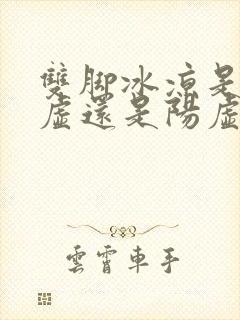 雙脚冰涼是
虛還是陽虛
雲霄車手